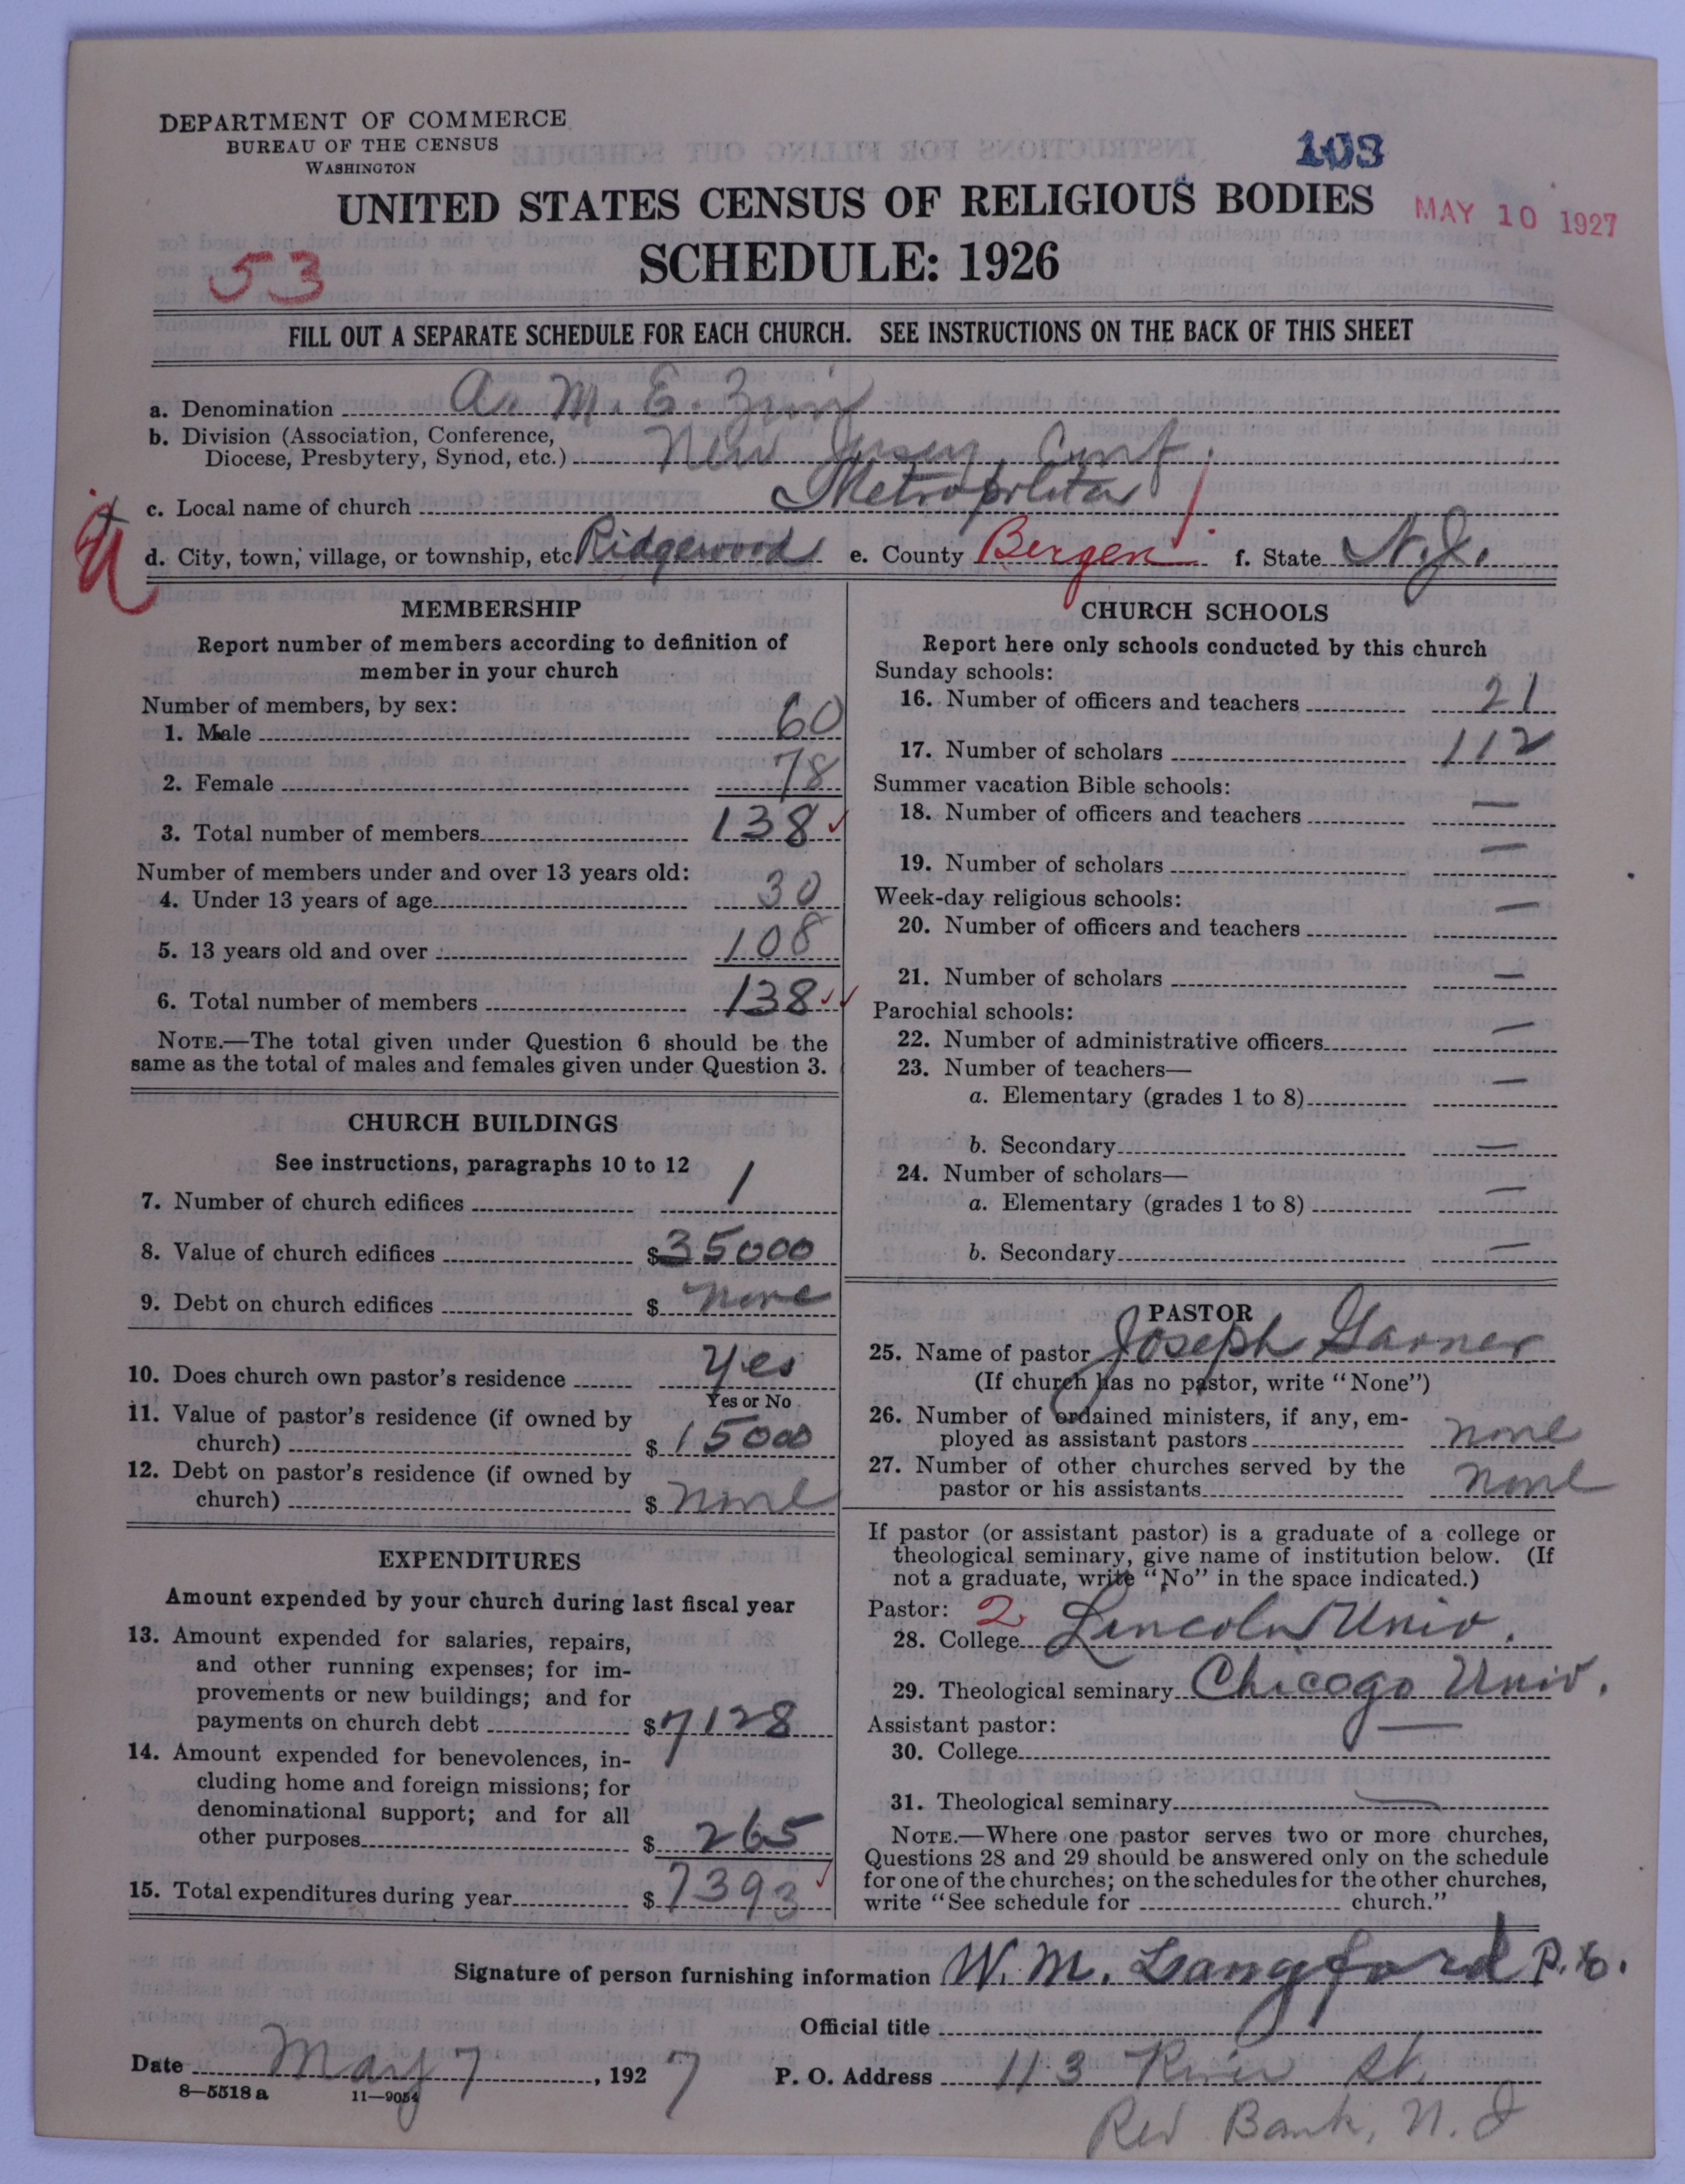 DEPARTMENT OF COMMERCE
BUREAU OF THE CENSUS
WASHINGTON
103
UNITED STATES CENSUS OF RELIGIOUS BODIES
MAY 10 1927
SCHEDULE: 1926
53
FILL OUT A SEPARATE SCHEDULE FOR EACH CHURCH. SEE INSTRUCTIONS ON THE BACK OF THIS SHEET
a. Denomination A. M. E. Zion
b. Division (Association, Conference,
Diocese, Presbytery, Synod, etc.) New Jersey Conf.
c. Local name of church Metropolitan
d. City, town, village, or township, etc Ridgewood e. County Bergen f. State N.J.
MEMBERSHIP
Report number of members according to definition of
member in your church
Number of members, by sex:
1. Male 60
2. Female 78
3. Total number of members 138
Number of members under and over 13 years old:
4. Under 13 years of age 30
5. 13 years old and over 108
6. Total number of members 138
NOTE.—The total given under Question 6 should be the
same as the total of males and females given under Question 3.
CHURCH BUILDINGS
See instructions, paragraphs 10 to 12
7. Number of church edifices 1
8. Value of church edifices $35000
9. Debt on church edifices $ none
10. Does church own pastor's residence Yes
Yes or No
11. Value of pastor's residence (if owned by
church) $15000
12. Debt on pastor's residence (if owned by
church) $ none
EXPENDITURES
Amount expended by your church during last fiscal year
13. Amount expended for salaries, repairs,
and other running expenses; for im-
provements or new buildings; and for
payments on church debt $7128
14. Amount expended for benevolences, in-
cluding home and foreign missions; for
denominational support; and for all
other purposes $ 265
15. Total expenditures during year $ 7393
CHURCH SCHOOLS
Report here only schools conducted by this church
Sunday schools:
16. Number of officers and teachers 21
17. Number of scholars 112
Summer vacation Bible schools:
18. Number of officers and teachers —
19. Number of scholars —
Week-day religious schools:
20. Number of officers and teachers —
21. Number of scholars —
Parochial schools:
22. Number of administrative officers —
23. Number of teachers—
a. Elementary (grades 1 to 8) —
b. Secondary —
24. Number of scholars—
a. Elementary (grades 1 to 8) —
b. Secondary —
PASTOR
25. Name of pastor Joseph Garner
(If church has no pastor, write "None")
26. Number of ordained ministers, if any, em-
ployed as assistant pastors none
27. Number of other churches served by the
pastor or his assistants none
If pastor (or assistant pastor) is a graduate of a college or
theological seminary, give name of institution below. (If
not a graduate, write "No" in the space indicated.)
Pastor: 2
28. College Lincoln Univ.
29. Theological seminary Chicago Univ.
Assistant pastor:
30. College —
31. Theological seminary —
NOTE.—Where one pastor serves two or more churches,
Questions 28 and 29 should be answered only on the schedule
for one of the churches; on the schedules for the other churches,
write "See schedule for church."
Signature of person furnishing information W. M. Langford P. E.
Official title
Date May 7, 1927 P. O. Address 113 River St.
8—5518 a 11—9054
Red Bank, N. J